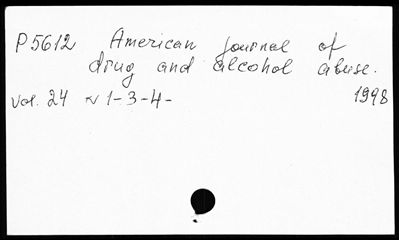 P5612 American journal of
drug and alcohol abuse.
vol. 24 N 1-3-4- 1998